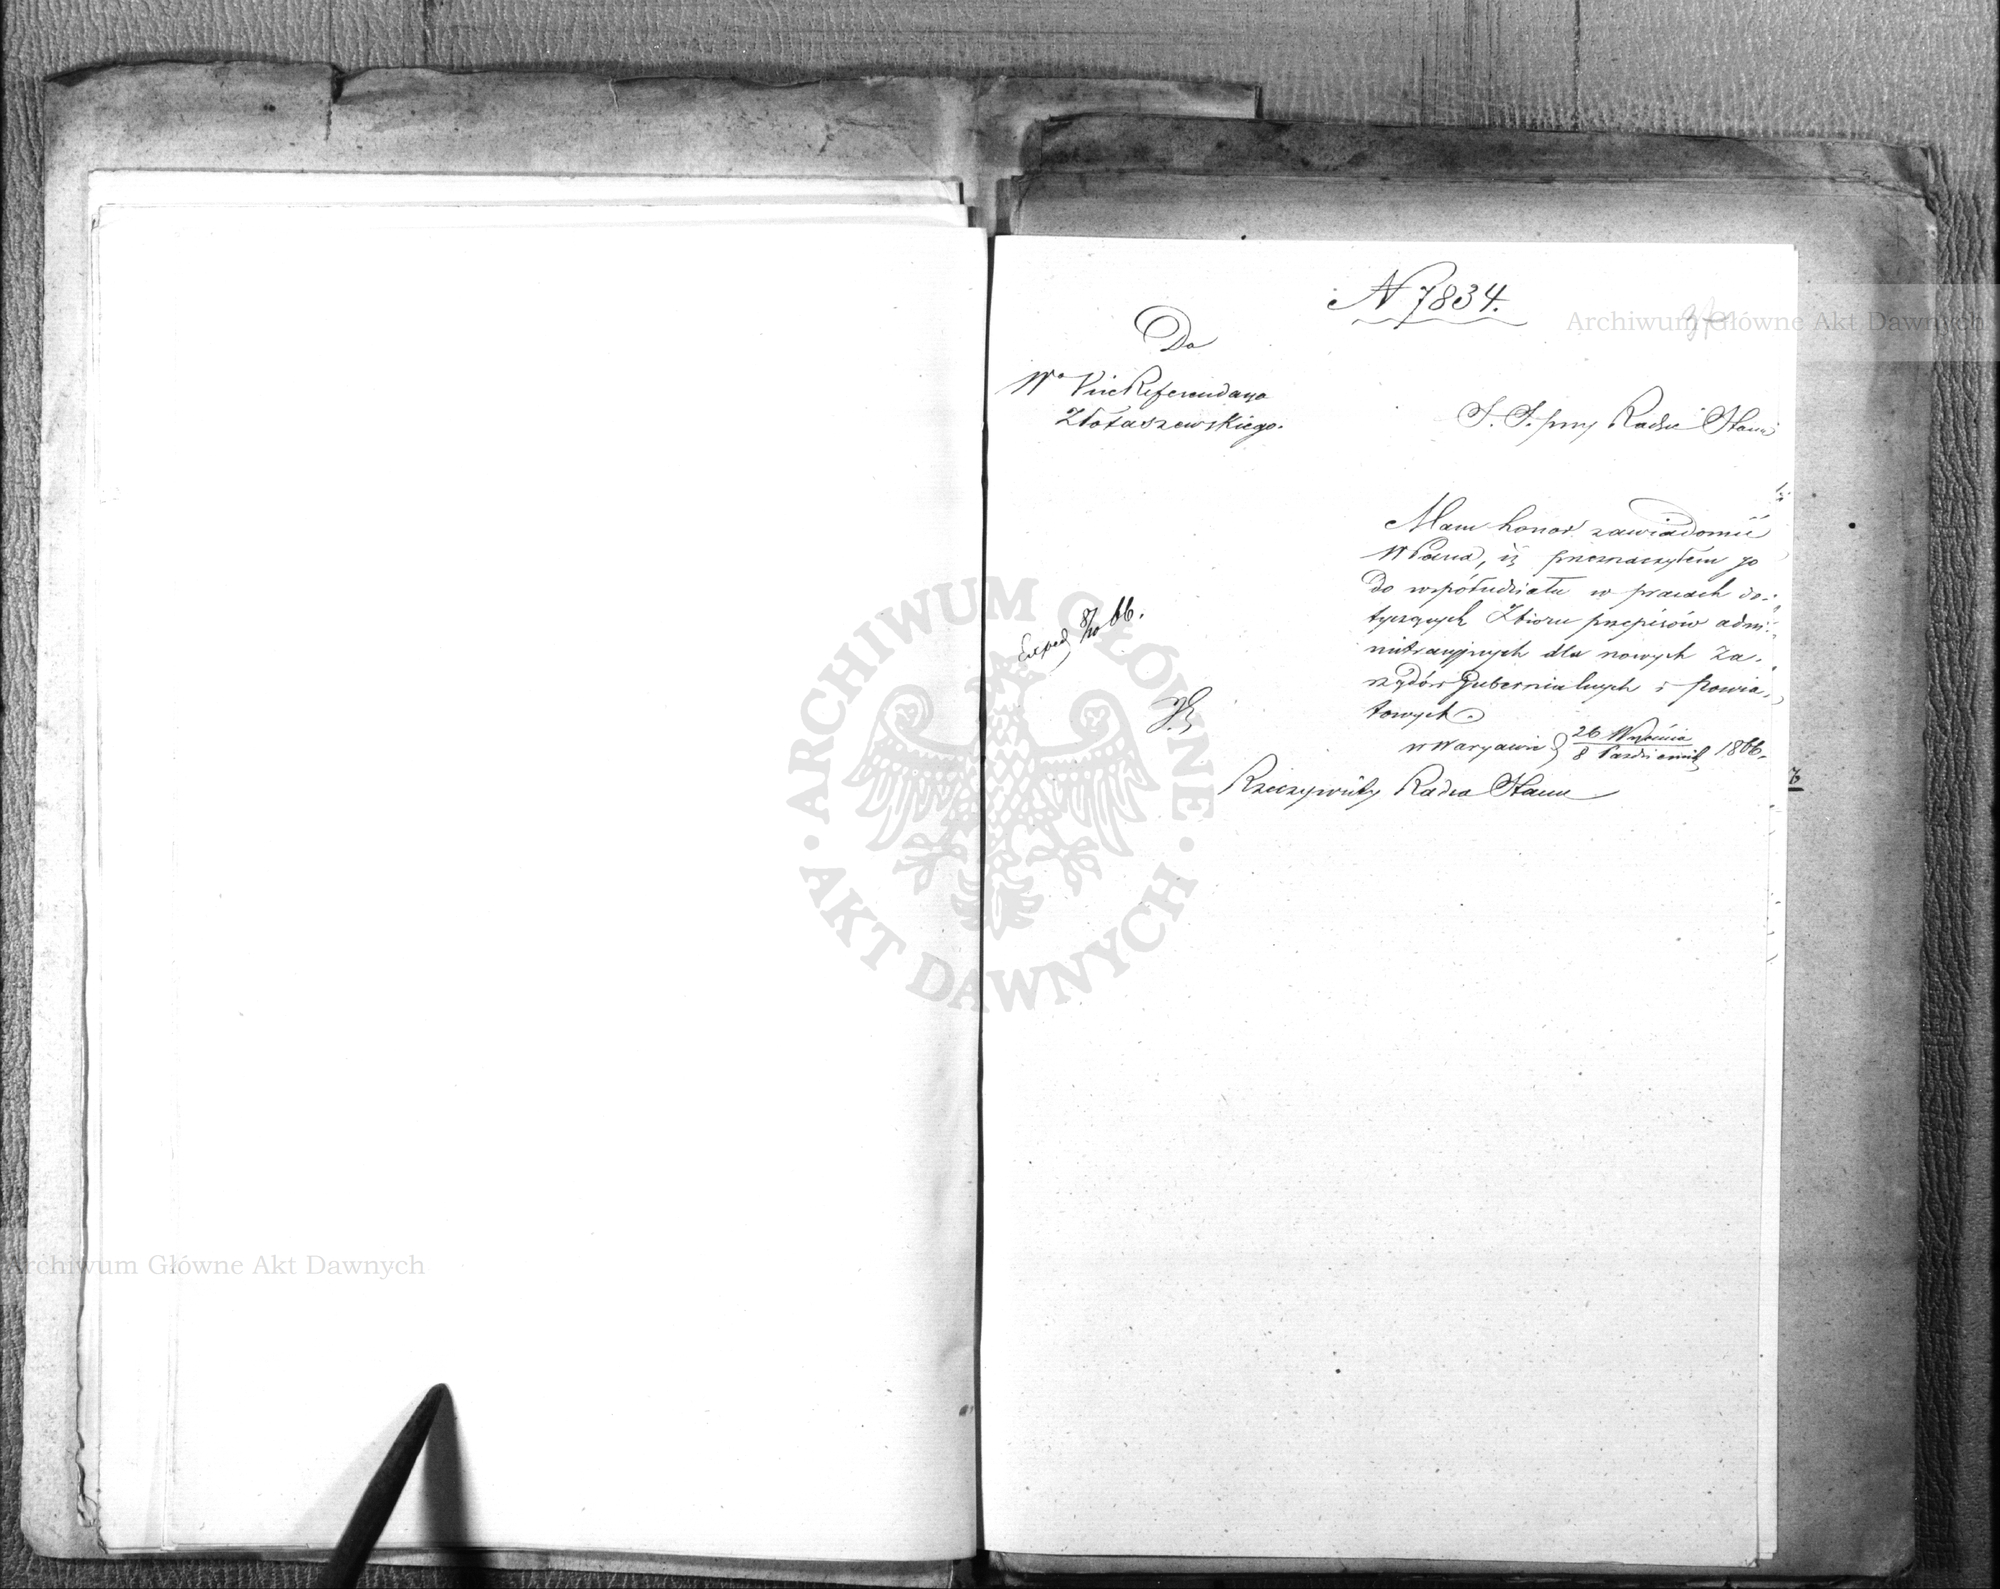 N 7834.
Do
Wo ViceReferendarza
Złotaszewskiego.
S. S. przy Radzie Stanu
Mam honor zawiadomić
W Pana, iż przeznaczyłem go
do współudziału w pracach do-
tyczących Zbioru przepisów admi-
nistracyjnych dla nowych Za-
rządów Gubernialnych i Powia-
towych.
w Warszawie 26 Września
8 Październik 1866.
Rzeczywisty Radca Stanu
Exped 8/10 66.
Archiwum Główne Akt Dawnych
ARCHIWUM GŁÓWNE
AKT DAWNYCH
Archiwum Główne Akt Dawnych